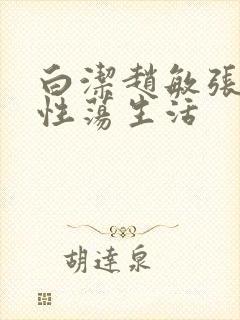 白潔趙敏張
性蕩生活
胡達泉